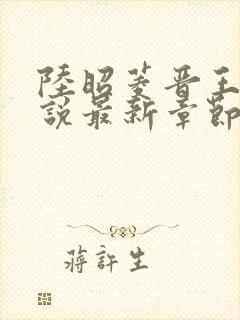 陸昭菱晉王
說最新章節
蔣許生